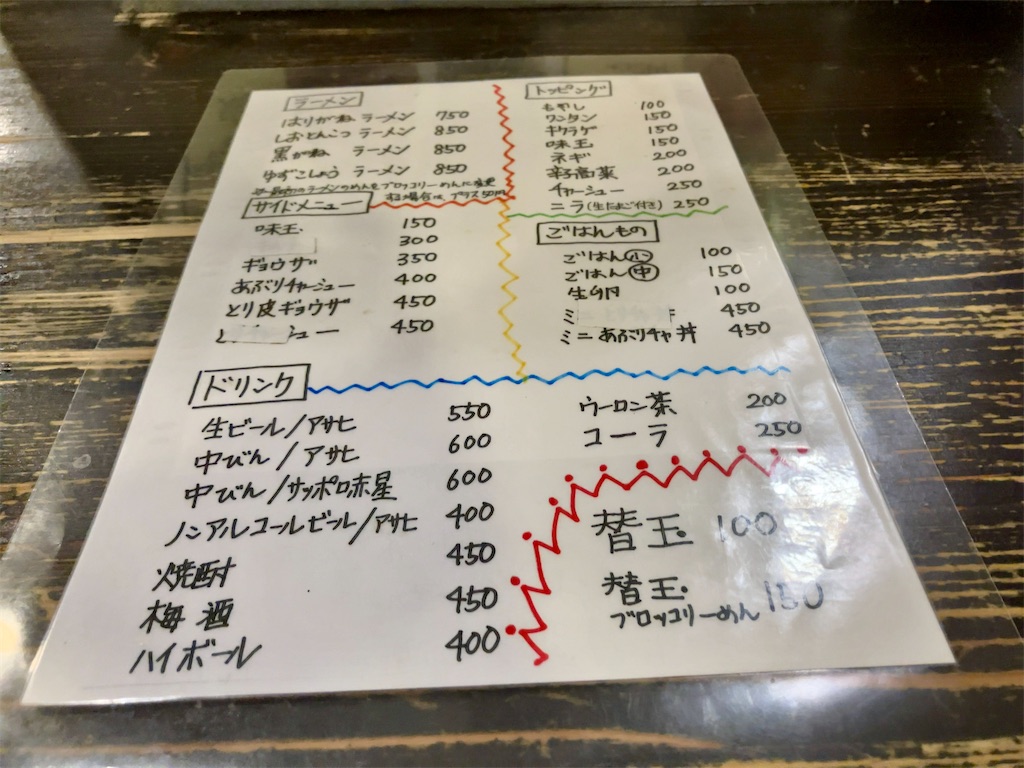 ラーメン
はりがねラーメン 750
しおとんこつラーメン 850
黒がねラーメン 850
ゆずこしょうラーメン 850
ラーメンのめんをブロッコリーめんに変更
する場合は、プラス50円
サイドメニュー
味玉 150
300
ギョウザ 350
あぶりチャーシュー 400
とり皮ギョウザ 450
シュー 450
トッピング
もやし 100
ワンタン 150
キクラゲ 150
味玉 150
ネギ 200
辛子高菜 200
チャーシュー 250
ニラ(生たまご付き) 250
ごはんもの
ごはん小 100
ごはん中 150
生卵 100
ミ 丼 450
ミニあぶりチャー丼 450
ドリンク
生ビール/アサヒ 550
中びん/アサヒ 600
中びん/サッポロ赤星 600
ノンアルコールビール/アサヒ 400
焼酎 450
梅酒 450
ハイボール 400
ウーロン茶 200
コーラ 250
替玉 100
替玉 150
ブロッコリーめん